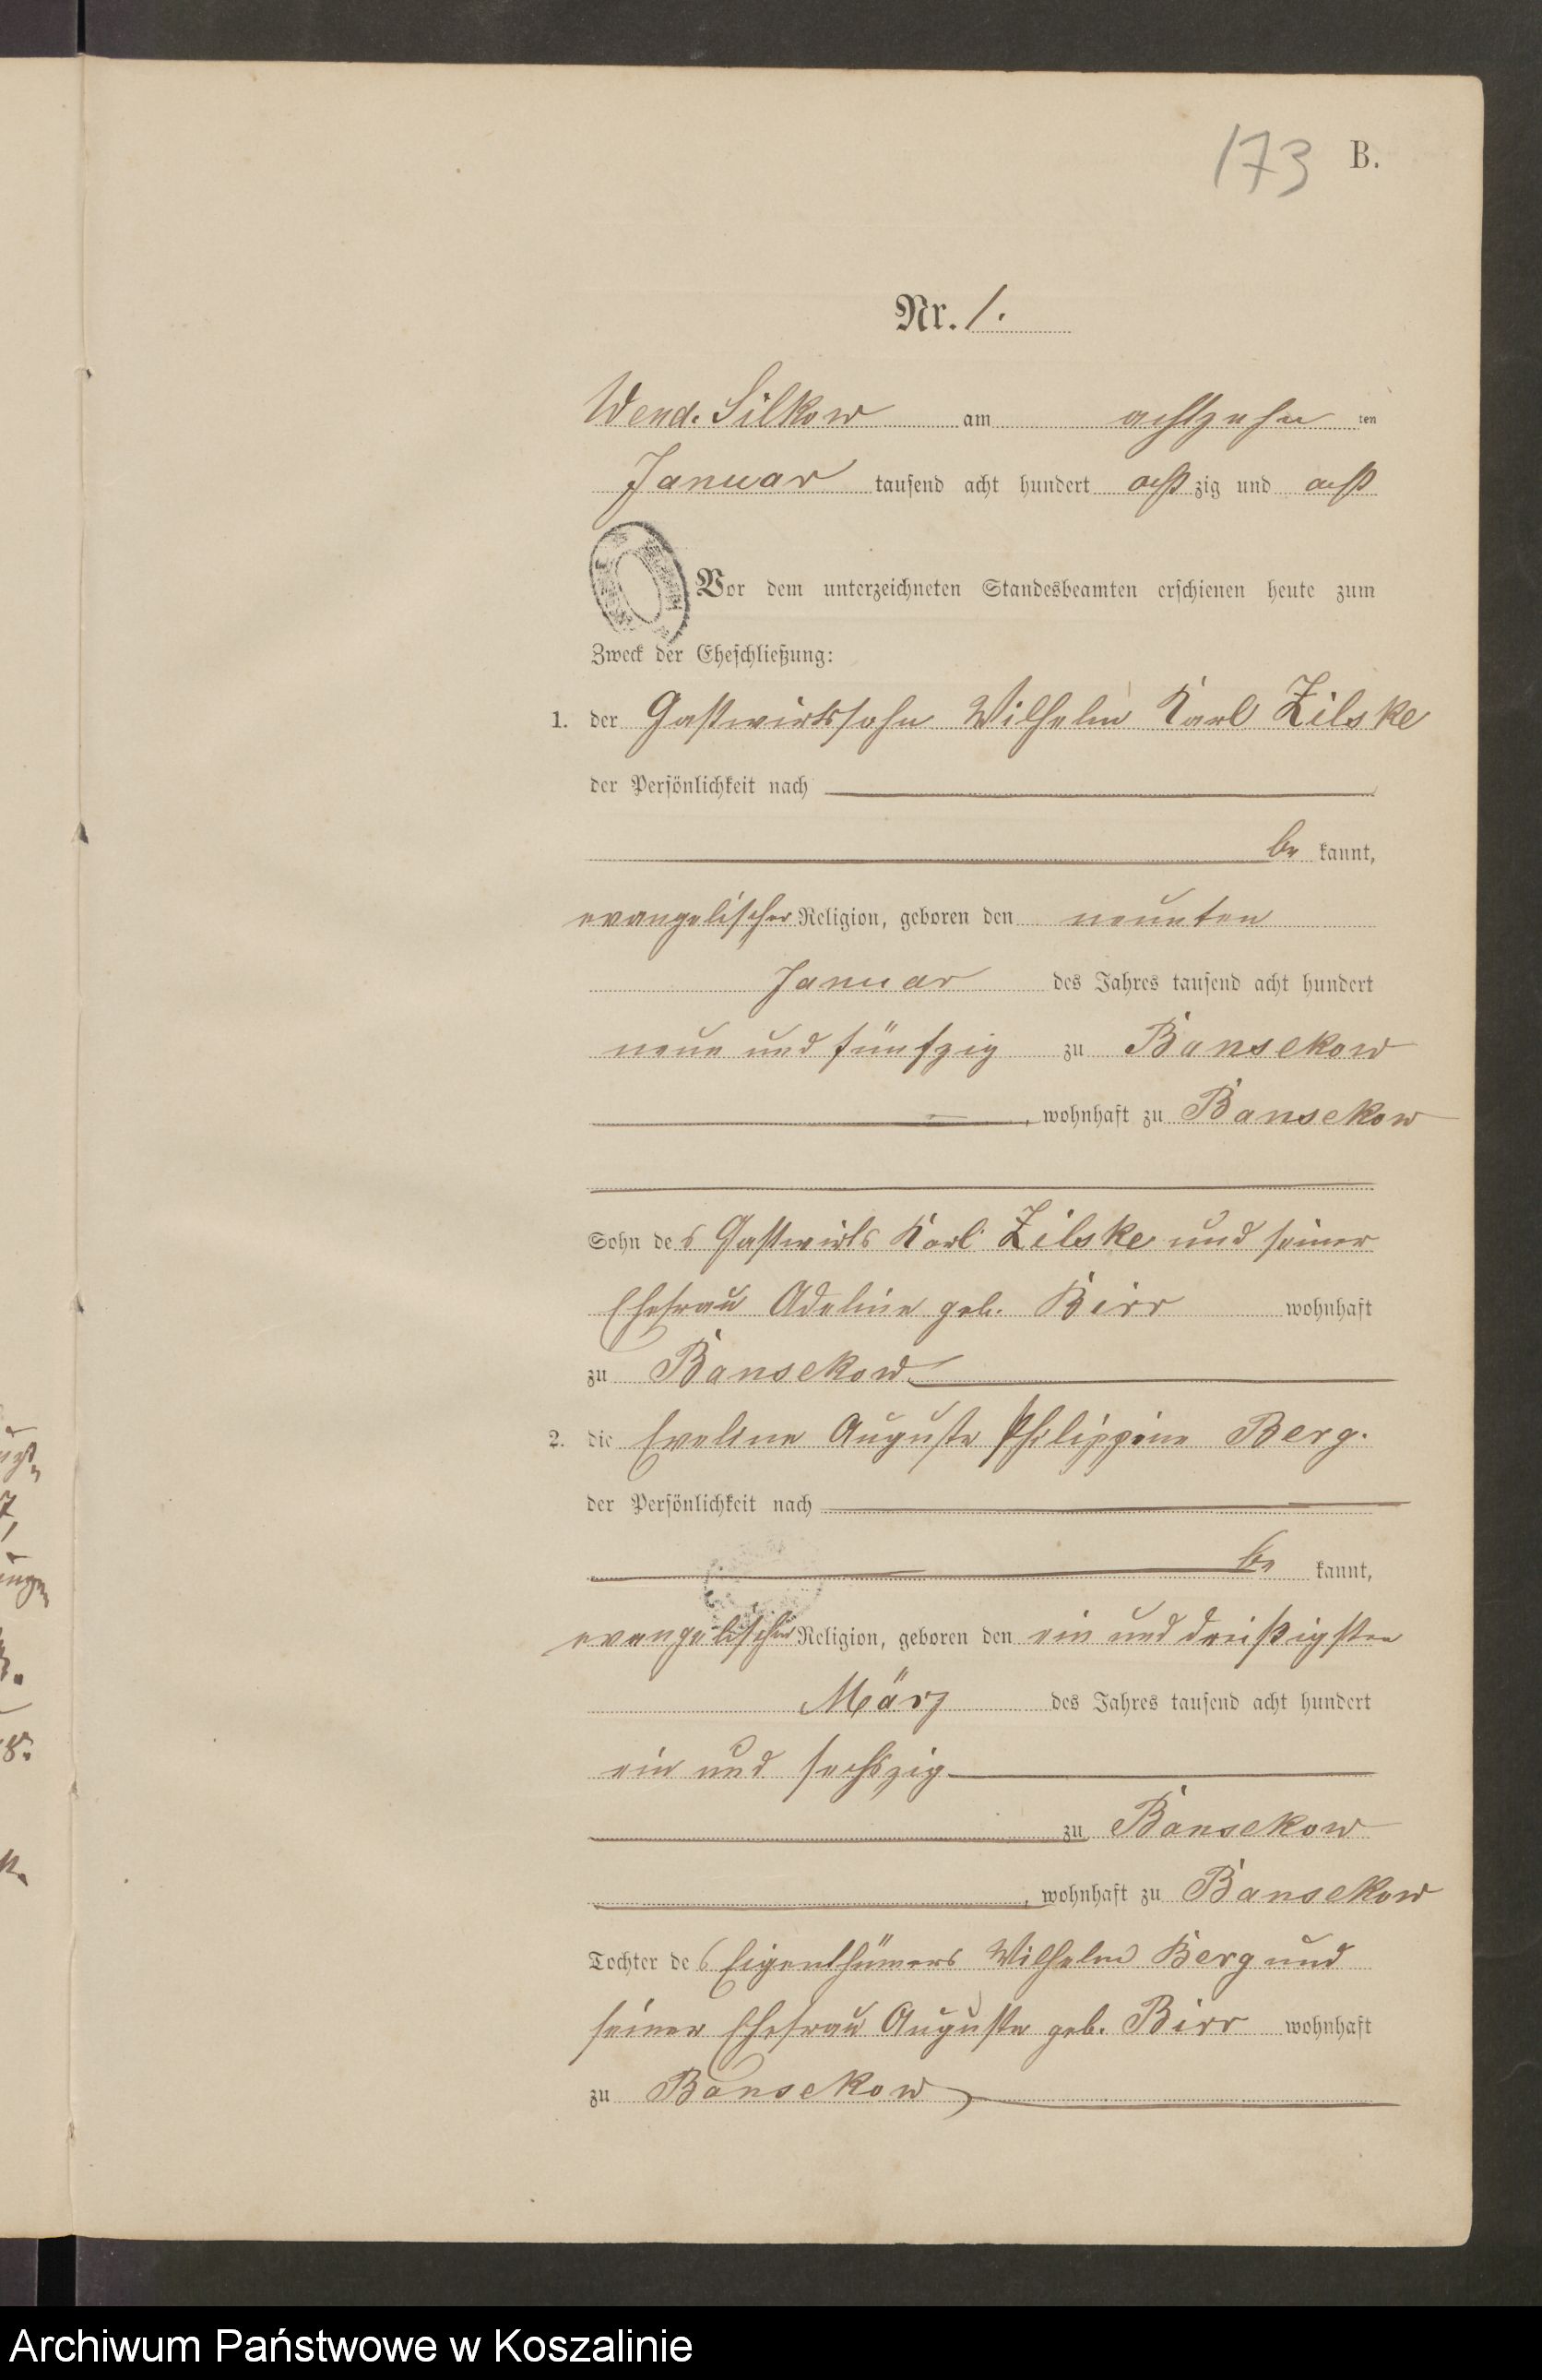 173 B.
Nr. 1.
Wend. Silkow am achtzehn ten
Januar tausend acht hundert achtzig und acht
Vor dem unterzeichneten Standesbeamten erschienen heute zum
Zweck der Eheschließung:
1. der Gastwirtssohn Wilhelm Karl Zilske
der Persönlichkeit nach
be kannt,
evangelischer Religion, geboren den neunten
Januar des Jahres tausend acht hundert
neun und fünfzig zu Bansekow
, wohnhaft zu Bansekow
Sohn des Gastwirts Karl Zilske und seiner
Ehefrau Adeline geb. Birr wohnhaft
zu Bansekow
2. die Eveline Auguste Philippine Berg.
der Persönlichkeit nach
be kannt,
evangelischer Religion, geboren den ein und dreißigsten
März des Jahres tausend acht hundert
ein und sechszig
zu Bansekow
, wohnhaft zu Bansekow
Tochter des Eigenthümers Wilhelm Berg und
seiner Ehefrau Auguste geb. Birr wohnhaft
zu Bansekow,
Archiwum Państwowe w Koszalinie